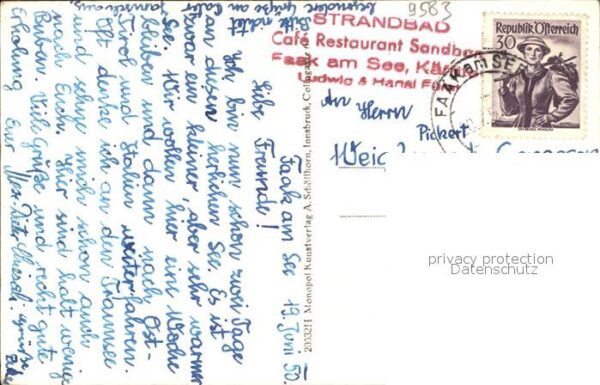 9583
STRANDBAD
Café Restaurant Sandba
Faak am See, Kärn
Ludwig & Hansl
Republik Österreich
30
FAAK am SEE
An Herrn
Pickert
Faak am See 19. Juni 50.
Liebe Freunde!
Ich bin nun schon zwei Tage
an diesem herrlichen See. Es ist
zwar ein kleiner, aber sehr warmer
See. Wir wollen hier eine Woche
bleiben und dann nach Ost-
Tirol und Italien weiterfahren.
Oft denke ich an den Traunsee
und sehne mich schon auch
nach Euch. Hier sind halt wenig
Viele Grüße und recht gute
Erholung Euer
Bitte, nicht
besondere Grüße an
2033211 Monopol Kunstverlag A. Schöllhorn, Innsbruck,
privacy protection
Datenschutz